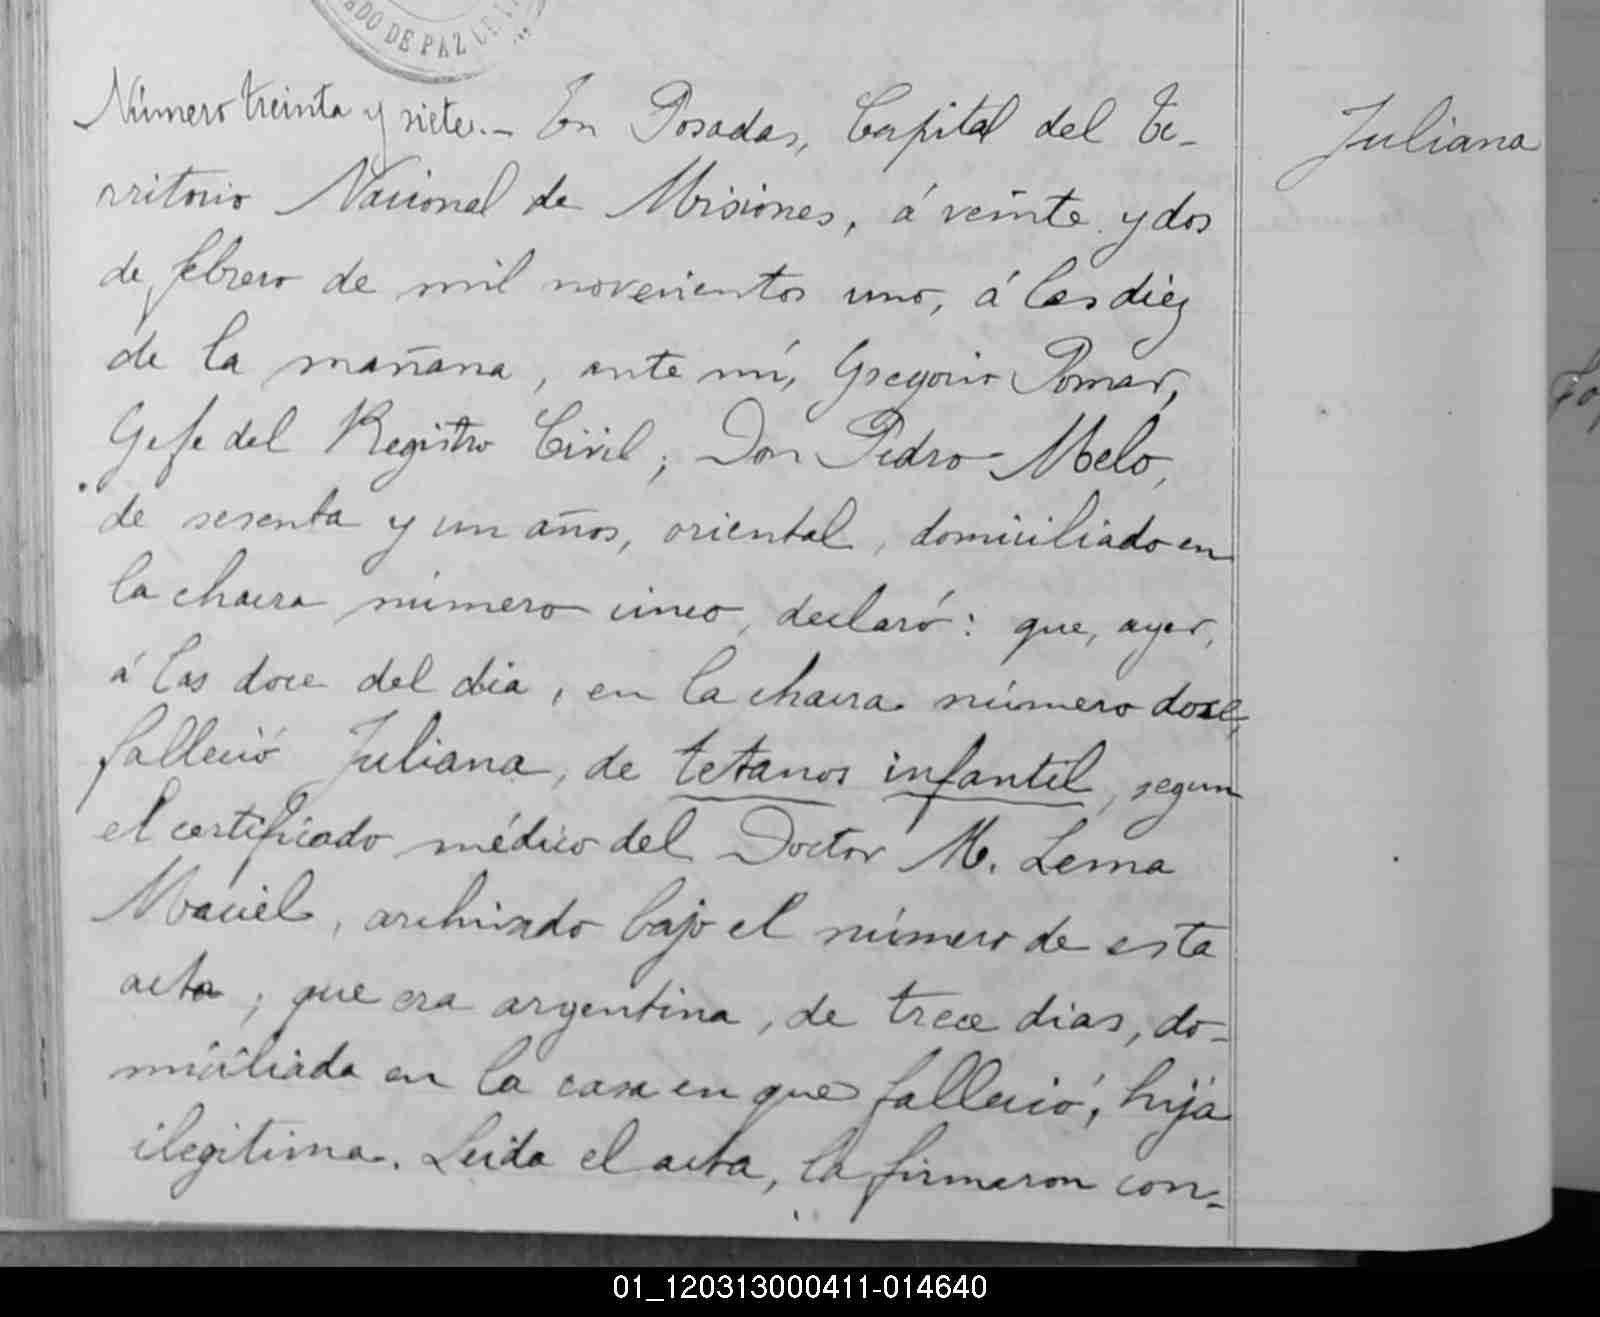 DO DE PAZ DE
Número treinta y siete.- En Posadas, Capital del Te-
rritorio Nacional de Misiones, á veinte y dos
de febrero de mil novecientos uno, á las diez
de la mañana, ante mí, Gregorio Pomar,
Gefe del Registro Civil; Don Pedro Melo,
de sesenta y un años, oriental, domiciliado en
la chacra número cinco, declaró: que, ayer,
á las doce del dia, en la chacra número doce,
falleció Juliana, de tetanos infantil, segun
el certificado médico del Doctor M. Lema
Maciel, archivado bajo el número de esta
acta; que era argentina, de trece dias, do-
miciliada en la casa en que falleció; hija
ilegitima. Leida el acta, la firmaron con-
Juliana
01_120313000411-014640